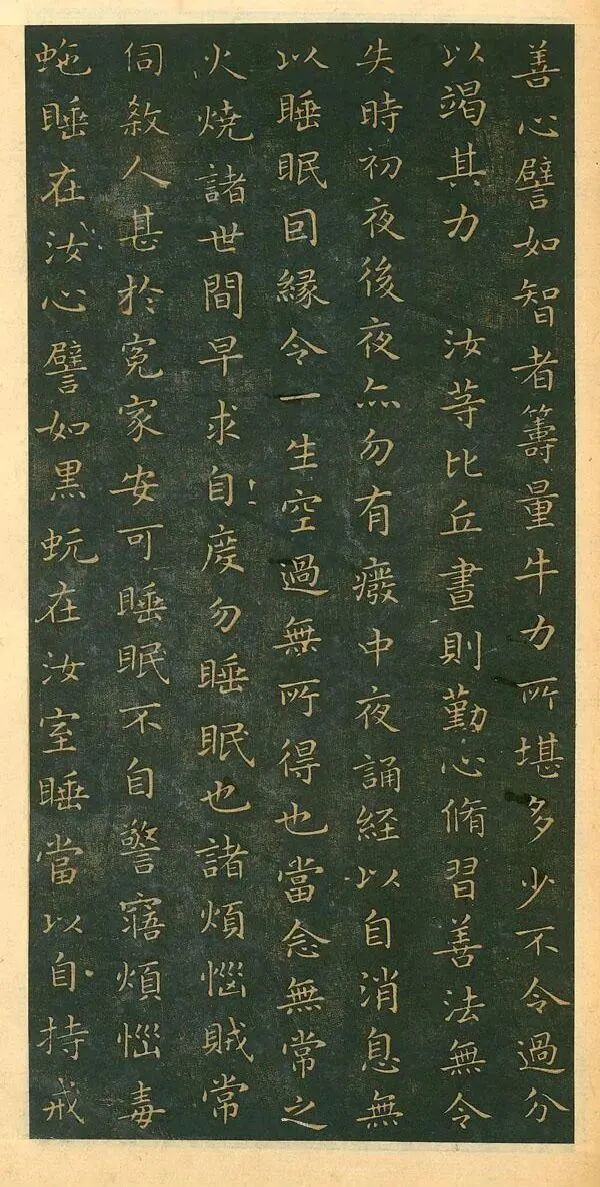 善心譬如智者籌量牛力所堪多少不令過分
以竭其力　汝等比丘晝則勤心脩習善法無令
失時初夜後夜亦勿有癈中夜誦經以自消息無
以睡眠因緣令一生空過無所得也當念無常之
火燒諸世間早求自度勿睡眠也諸煩惱賊常
伺殺人甚於寃家安可睡眠不自警寤煩惱毒
虵睡在汝心譬如黑蚖在汝室睡當以自持戒